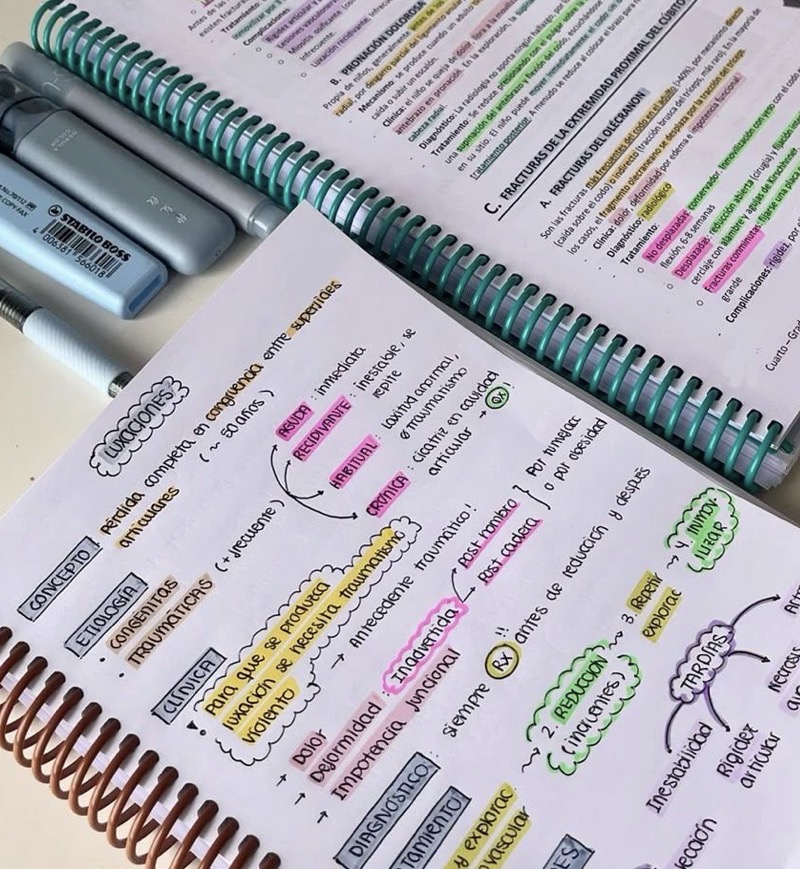 B. PRONACIÓN DOLOROSA
Propia de niños, generalmente
radial, por desgarro parcial del ligamento
Mecanismo: se produce cuando un adulto
caída o subir un escalón.
Clínica: el niño se queja de dolor, llora
antebrazo en pronación. En la exploración, la
cabeza radial.
Diagnóstico: La radiología no aporta ningún hallazgo, por
Tratamiento: Se reduce presionando con el pulgar sobre
una supinación del antebrazo y flexión de codo, escuchándose
en su sitio. El niño puede mover inmediatamente el codo sin
tratamiento posterior. A menudo se reduce al colocar el brazo para
C. FRACTURAS DE LA EXTREMIDAD PROXIMAL DEL CÚBITO
A. FRACTURAS DEL OLÉCRANON
Son las fracturas más frecuentes del codo en el adulto (>40%), por mecanismo directo
(caída sobre el codo) o indirecto (tracción brusca del tríceps, más raro). En la mayoría de
los casos, el fragmento olecraneano se desplaza por la tracción del tríceps.
Clínica: dolor, deformidad por edema e impotencia funcional.
Diagnóstico: radiológico
Tratamiento:
No desplazadas: conservador. Inmovilización con yeso con el codo
flexión, 6-8 semanas
Desplazadas: reducción abierta (cirugía) y fijación
cerclaje con alambre y agujas de Kirschner.
fracturas conminutas fijarse una placa
grande
Complicaciones: rigidez, por
Cuarto – Gra
STABILO BOSS
4 006381 566018
LUXACIONES
CONCEPTO
pérdida completa en congruencia entre superficies
articulares
(~ 50 años)
ETIOLOGÍA
• CONGÉNITAS
• TRAUMÁTICAS (+ frecuente)
AGUDA : inmediata
RECIDIVANTE : inestable, se
repite
HABITUAL : laxitud anormal,
Ø traumatismo
CRÓNICA : cicatriz en cavidad
articular → Qx !
CLÍNICA
! Para que se produzca
luxación se necesita traumatismo
violento
→ Antecedente traumático!
→ Dolor
→ Deformidad : Inadvertida
Post hombro
Post cadera
Por tumefac
o por obesidad
→ Impotencia funcional
DIAGNÓSTICO : siempre Rx !! antes de reducción y después
TRATAMIENTO
y explorac
vascular
2. REDUCCIÓN
(incruentes)
3. Repetir
explorac
4. INMOVI
LIZAR
TARDÍAS
Inestabilidad
Rigidez
articular
Necrosis